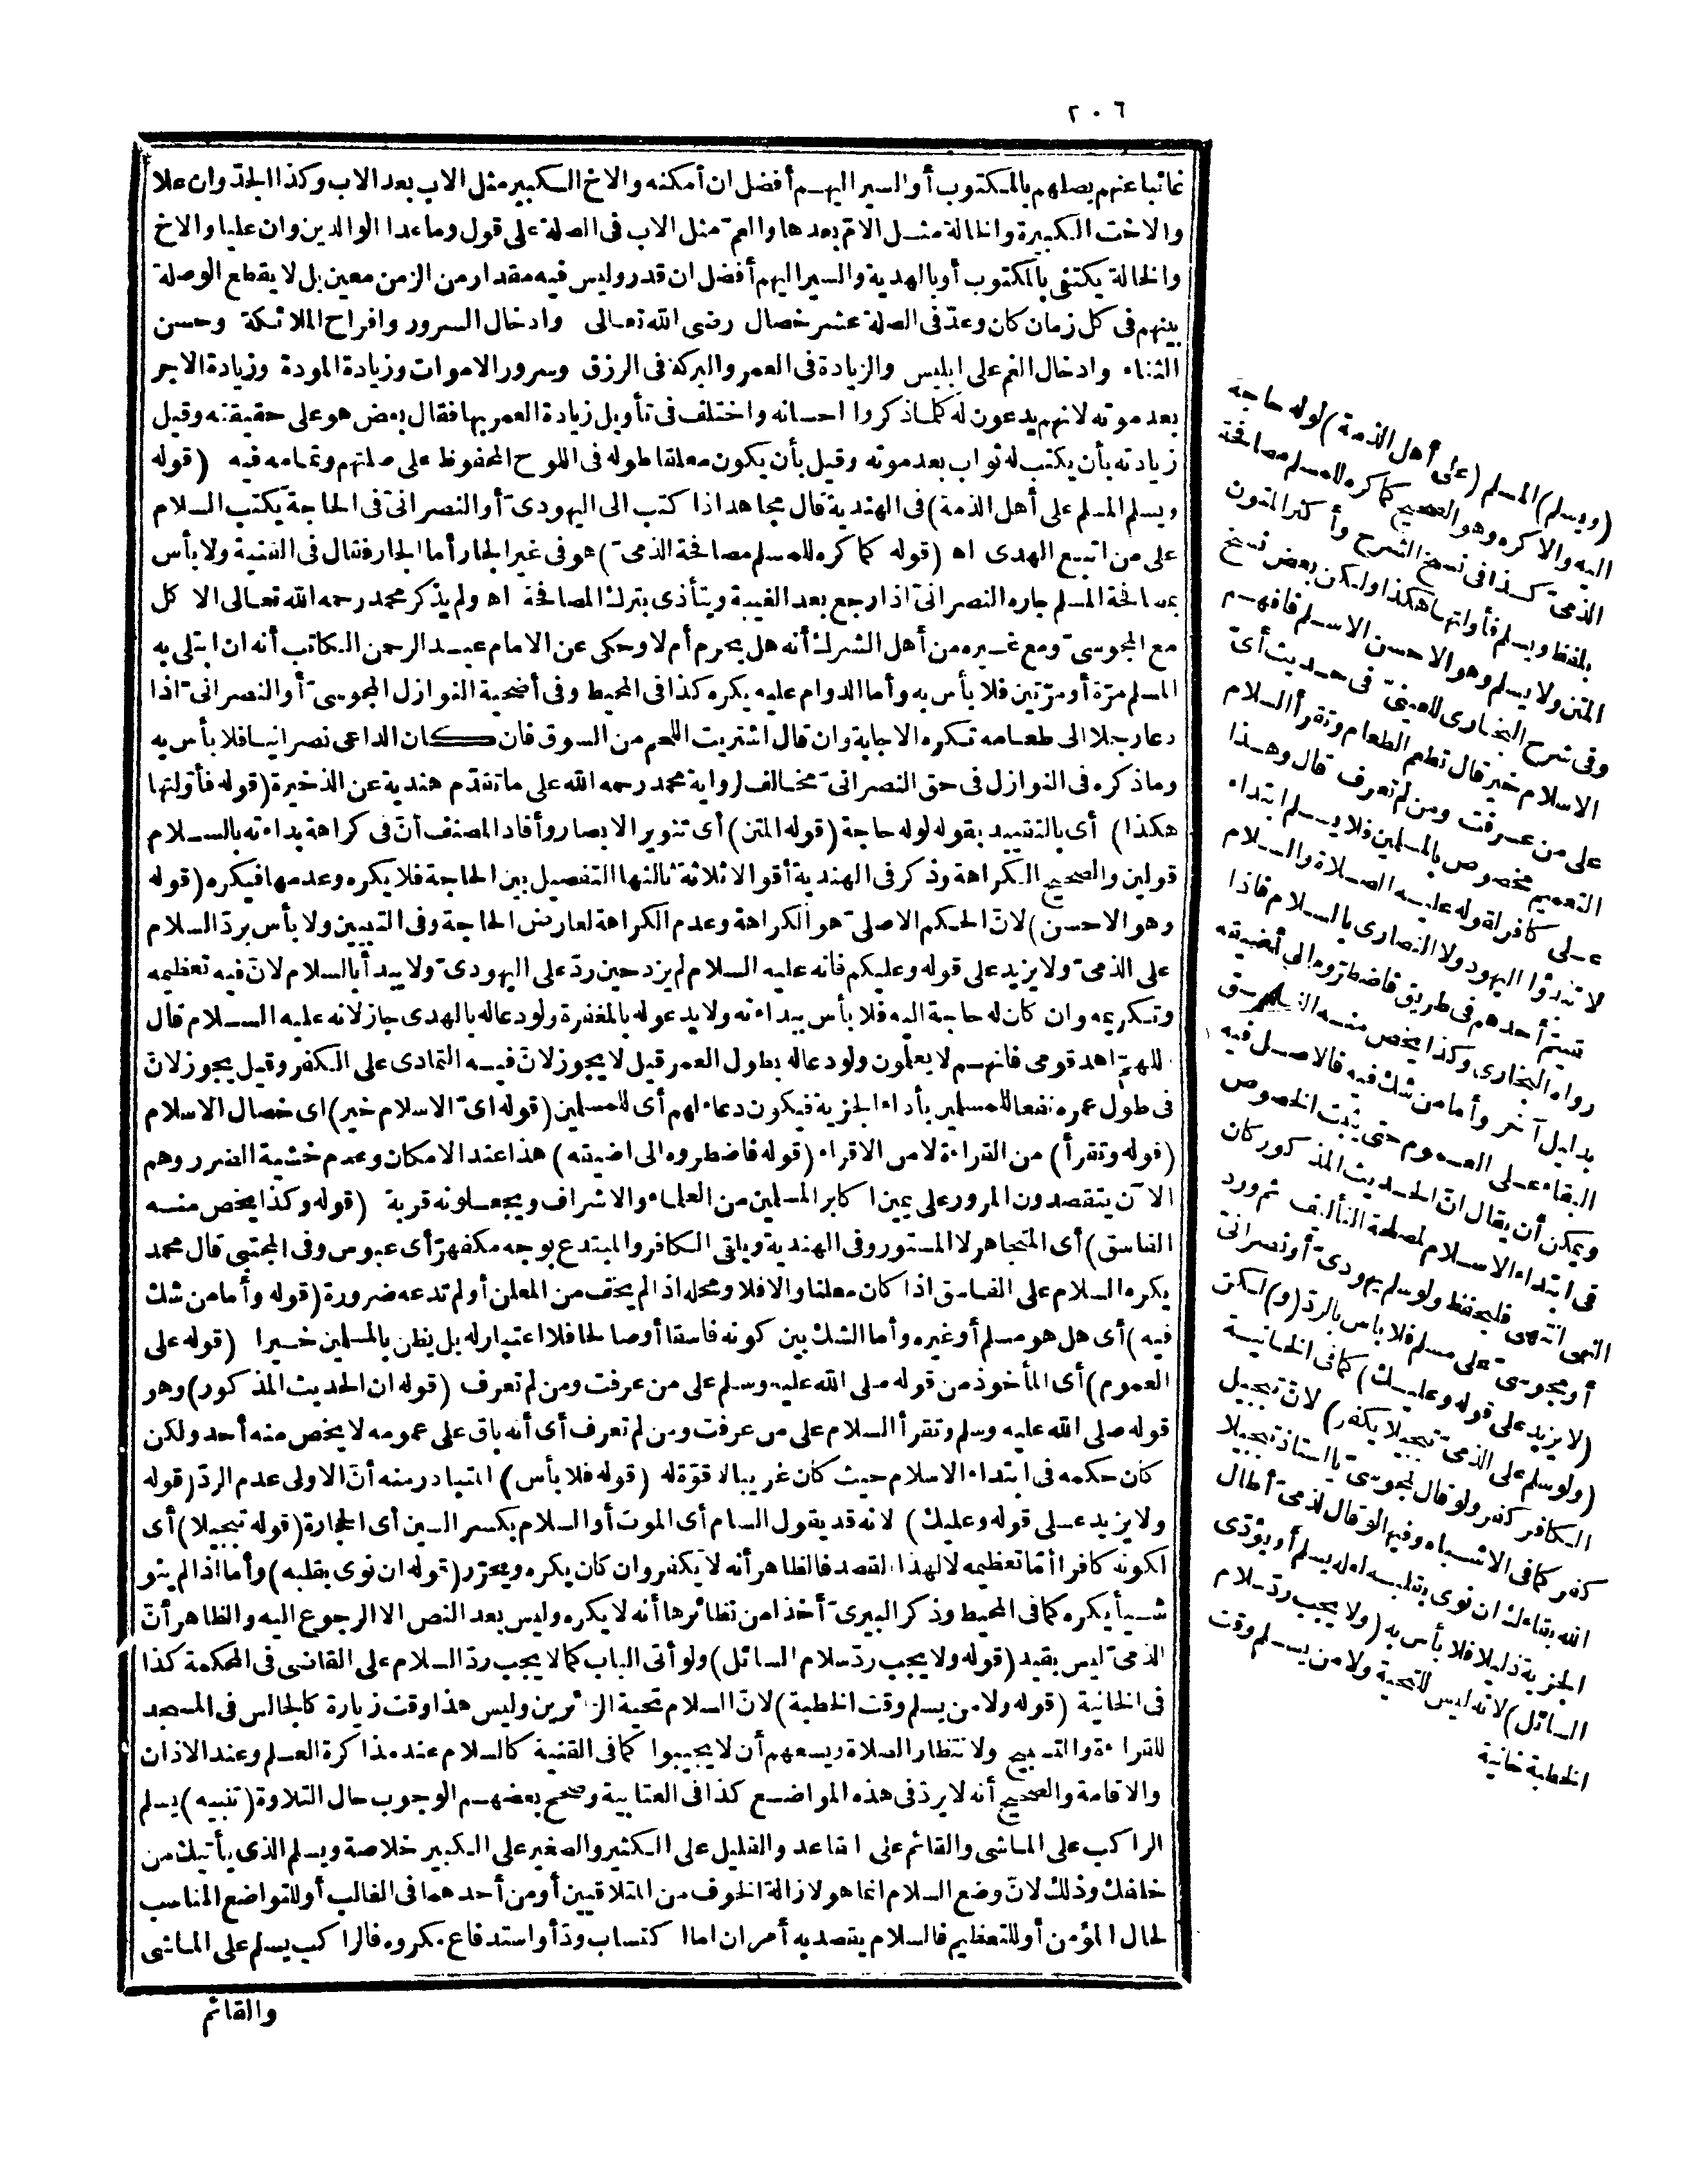 ٢٠٦
غائبا عنهم يصلهم بالمكتوب أو السير اليهم أفضل ان أمكنه والاخ الكبير مثل الاب بعد الاب وكذا الجد وان علا
والاخت الكبيرة والخالة مثل الام بعدها والعم مثل الاب فى الصلة على قول وما عدا الوالدين وان عليا والاخ
والخالة يكتفى بالمكتوب أو بالهدية والسير اليهم أفضل ان قدر وليس فيه مقدار من الزمن معين بل لا يقطع الوصلة
بينهم فى كل زمان كان وعدّ فى الصلة عشر خصال رضى الله تعالى وادخال السرور وافراح الملائكة وحسن
الثناء وادخال الغم على ابليس والزيادة فى العمر والبركة فى الرزق وسرور الاموات وزيادة المودة وزيادة الاجر
بعد موته لانهم يدعون له كلما ذكروا احسانه واختلف فى تأويل زيادة العمر بها فقال بعض هو على حقيقته وقيل
زيادته بأن يكتب له ثواب بعد موته وقيل بأن يكون معلقا طوله فى اللوح المحفوظ على صلتهم وتمامه فيه (قوله
ويسلم المسلم على أهل الذمة) فى الهندية قال مجاهد اذا كتب الى اليهودىّ أو النصرانىّ فى الحاجة يكتب السلام
على من اتبع الهدى اه (قوله كما كره للمسلم مصافحة الذمىّ) هو فى غير الجار أما الجار فقال فى القنية ولا بأس
بمصافحة المسلم جاره النصرانىّ اذا رجع بعد الغيبة ويتأذى بترك المصافحة اه ولم يذكر محمد رحمه الله تعالى الاكل
مع المجوسىّ ومع غيره من أهل الشرك أنه هل يحرم أم لا وحكى عن الامام عبد الرحمن الكاتب أنه ان ابتلى به
المسلم مرّة أو مرّتين فلا بأس به وأما الدوام عليه يكره كذا فى المحيط وفى أضحية النوازل المجوسىّ أو النصرانىّ اذا
دعا رجلا الى طعامه تكره الاجابة وان قال اشتريت اللحم من السوق فان كان الداعى نصرانيا فلا بأس به
وما ذكره فى النوازل فى حق النصرانىّ مخالف لرواية محمد رحمه الله على ما تقدّم هندية عن الذخيرة (قوله فأولتها
هكذا) أى بالتقييد بقوله لو له حاجة (قوله المتن) أى تنوير الابصار وأفاد المصنف أنّ فى كراهة بداءته بالسلام
قولين والصحيح الكراهة وذكر فى الهندية أقوالا ثلاثة ثالثها التفصيل بين الحاجة فلا يكره وعدمها فيكره (قوله
وهو الاحسن) لانّ الحكم الاصلىّ هو الكراهة وعدم الكراهة لعارض الحاجة وفى التبيين ولا بأس بردّ السلام
على الذمىّ ولا يزيد على قوله وعليكم فانه عليه السلام لم يزد حين ردّ على اليهودىّ ولا يبدأ بالسلام لانّ فيه تعظيمه
وتكريمه وان كان له حاجة اليه فلا بأس ببداءته ولا يدعو له بالمغفرة ولو دعا له بالهدى جاز لانه عليه السلام قال
للهمّ اهد قومى فانهم لا يعلمون ولو دعا له بطول العمر قيل لا يجوز لانّ فيه التمادى على الكفر وقيل يجوز لانّ
فى طول عمره نفعا للمسلمين بأداء الجزية فيكون دعاء لهم أى للمسلمين (قوله اىّ الاسلام خير) اى خصال الاسلام
(قوله وتقرأ) من القراءة لا من الاقراء (قوله فاضطروه الى اضيقه) هذا عند الامكان وعدم خشية الضرر وهم
الآن يتقصدون المرور على يمين اكابر المسلمين من العلماء والاشراف ويجعلونه قربة (قوله وكذا يخص منه
الفاسق) أى المتجاهر لا المستور وفى الهندية ويلقى الكافر والمبتدع بوجه مكفهرّ أى عبوس وفى المجتبى قال محمد
يكره السلام على الفاسق اذا كان معلنا والا فلا ومحله اذ لم يخف من المعلن أو لم تدعه ضرورة (قوله وأما من شك
فيه) أى هل هو مسلم أو غيره وأما الشك بين كونه فاسقا أو صالحا فلا اعتبار له بل يظن بالمسلمين خيرا (قوله على
العموم) أى المأخوذ من قوله صلى الله عليه وسلم على من عرفت ومن لم تعرف (قوله ان الحديث المذكور) وهو
قوله صلى الله عليه وسلم وتقرأ السلام على من عرفت ومن لم تعرف أى أنه باق على عمومه لا يخص منه أحد ولكن
كان حكمه فى ابتداء الاسلام حيث كان غريبا لا قوّة له (قوله فلا بأس) المتبادر منه أنّ الاولى عدم الردّ (قوله
ولا يزيد على قوله وعليك) لانه قد يقول السام أى الموت أو السلام بكسر السين أى الحجارة (قوله تبجيلا) أى
لكونه كافرا أمّا تعظيمه لا لهذا القصد فالظاهر أنه لا يكفر وان كان يكره ويحرّر (قوله ان نوى بقلبه) وأما اذا لم ينو
شيأ يكره كما فى المحيط وذكر البيرىّ أخذا من نظائرها أنه لا يكره وليس بعد النص الا الرجوع اليه والظاهر أنّ
الذمىّ ليس بقيد (قوله ولا يجب ردّ سلام السائل) ولو أتى الباب كما لا يجب ردّ السلام على القاضى فى المحكمة كذا
فى الخانية (قوله ولا من يسلم وقت الخطبة) لانّ السلام تحية الزائرين وليس هذا وقت زيارة كالجالس فى المسجد
للقراءة والتسبيح ولانتظار الصلاة ويسعهم أن لا يجيبوا كما فى القنية كالسلام عند مذاكرة العلم وعند الاذان
والاقامة والصحيح أنه لا يردّ فى هذه المواضع كذا فى العتابية وصحح بعضهم الوجوب حال التلاوة (تنبيه) يسلم
الراكب على الماشى والقائم على القاعد والقليل على الكثير والصغير على الكبير خلاصة ويسلم الذى يأتيك من
خلفك وذلك لانّ وضع السلام انما هو لازالة الخوف من المتلاقيين أو من أحدهما فى الغالب أو للتواضع المناسب
لحال المؤمن أو للتعظيم فالسلام يقصد به أمران اما اكتساب ودّ أو استدفاع مكروه فالراكب يسلم على الماشى
والقائم
(ويسلم) المسلم (على أهل الذمة) لو له حاجة
اليه والا كره وهو الصحيح كما كره للمسلم مصافحة
الذمىّ كذا فى نسخ الشرح وأكثر المتون
بلفظ ويسلم فأولتها هكذا ولكن بعض نسخ
المتن ولا يسلم وهو الاحسن الاسلم فافهم
وفى شرح البخارى للعينىّ فى حديث أىّ
الاسلام خير قال تطعم الطعام وتقرأ السلام
على من عرفت ومن لم تعرف قال وهذا
التعميم مخصوص بالمسلمين فلا يسلم ابتداء
على كافر لقوله عليه الصلاة والسلام
لا تبدؤا اليهود ولا النصارى بالسلام فاذا
لقيتم أحدهم فى طريق فاضطروه الى أضيقه
رواه البخارى وكذا يخص منه الفاسق
بدليل آخر وأما من شك فيه فالاصل فيه
البقاء على العموم حتى يثبت الخصوص
ويمكن أن يقال انّ الحديث المذكور كان
فى ابتداء الاسلام لمصلحة التأليف ثم ورد
النهى انتهى فليحفظ ولو سلم يهودىّ أو نصرانىّ
أو مجوسىّ على مسلم فلا باس بالردّ (و) لكن
(لا يزيد على قوله وعليك) كما فى الخانية
(ولو سلم على الذمىّ تبجيلا يكفر) لانّ تبجيل
الكافر كفر ولو قال لمجوسىّ يا استاذ تبجيلا
كفر كما فى الاشباه وفيها لو قال لذمىّ أطال
الله بقاءك ان نوى بقلبه لعله يسلم أو يؤدّى
الجزية ذليلا فلا بأس به (ولا يجب ردّ سلام
السائل) لانه ليس للتحية ولا من يسلم وقت
الخطبة خانية